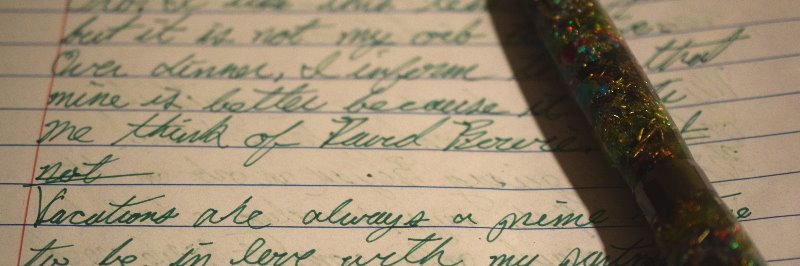 but it is not my orb
Over dinner, I inform that
mine is better because it
me think of David Bowie.
not
Vacations are always a prime
to be in love with my